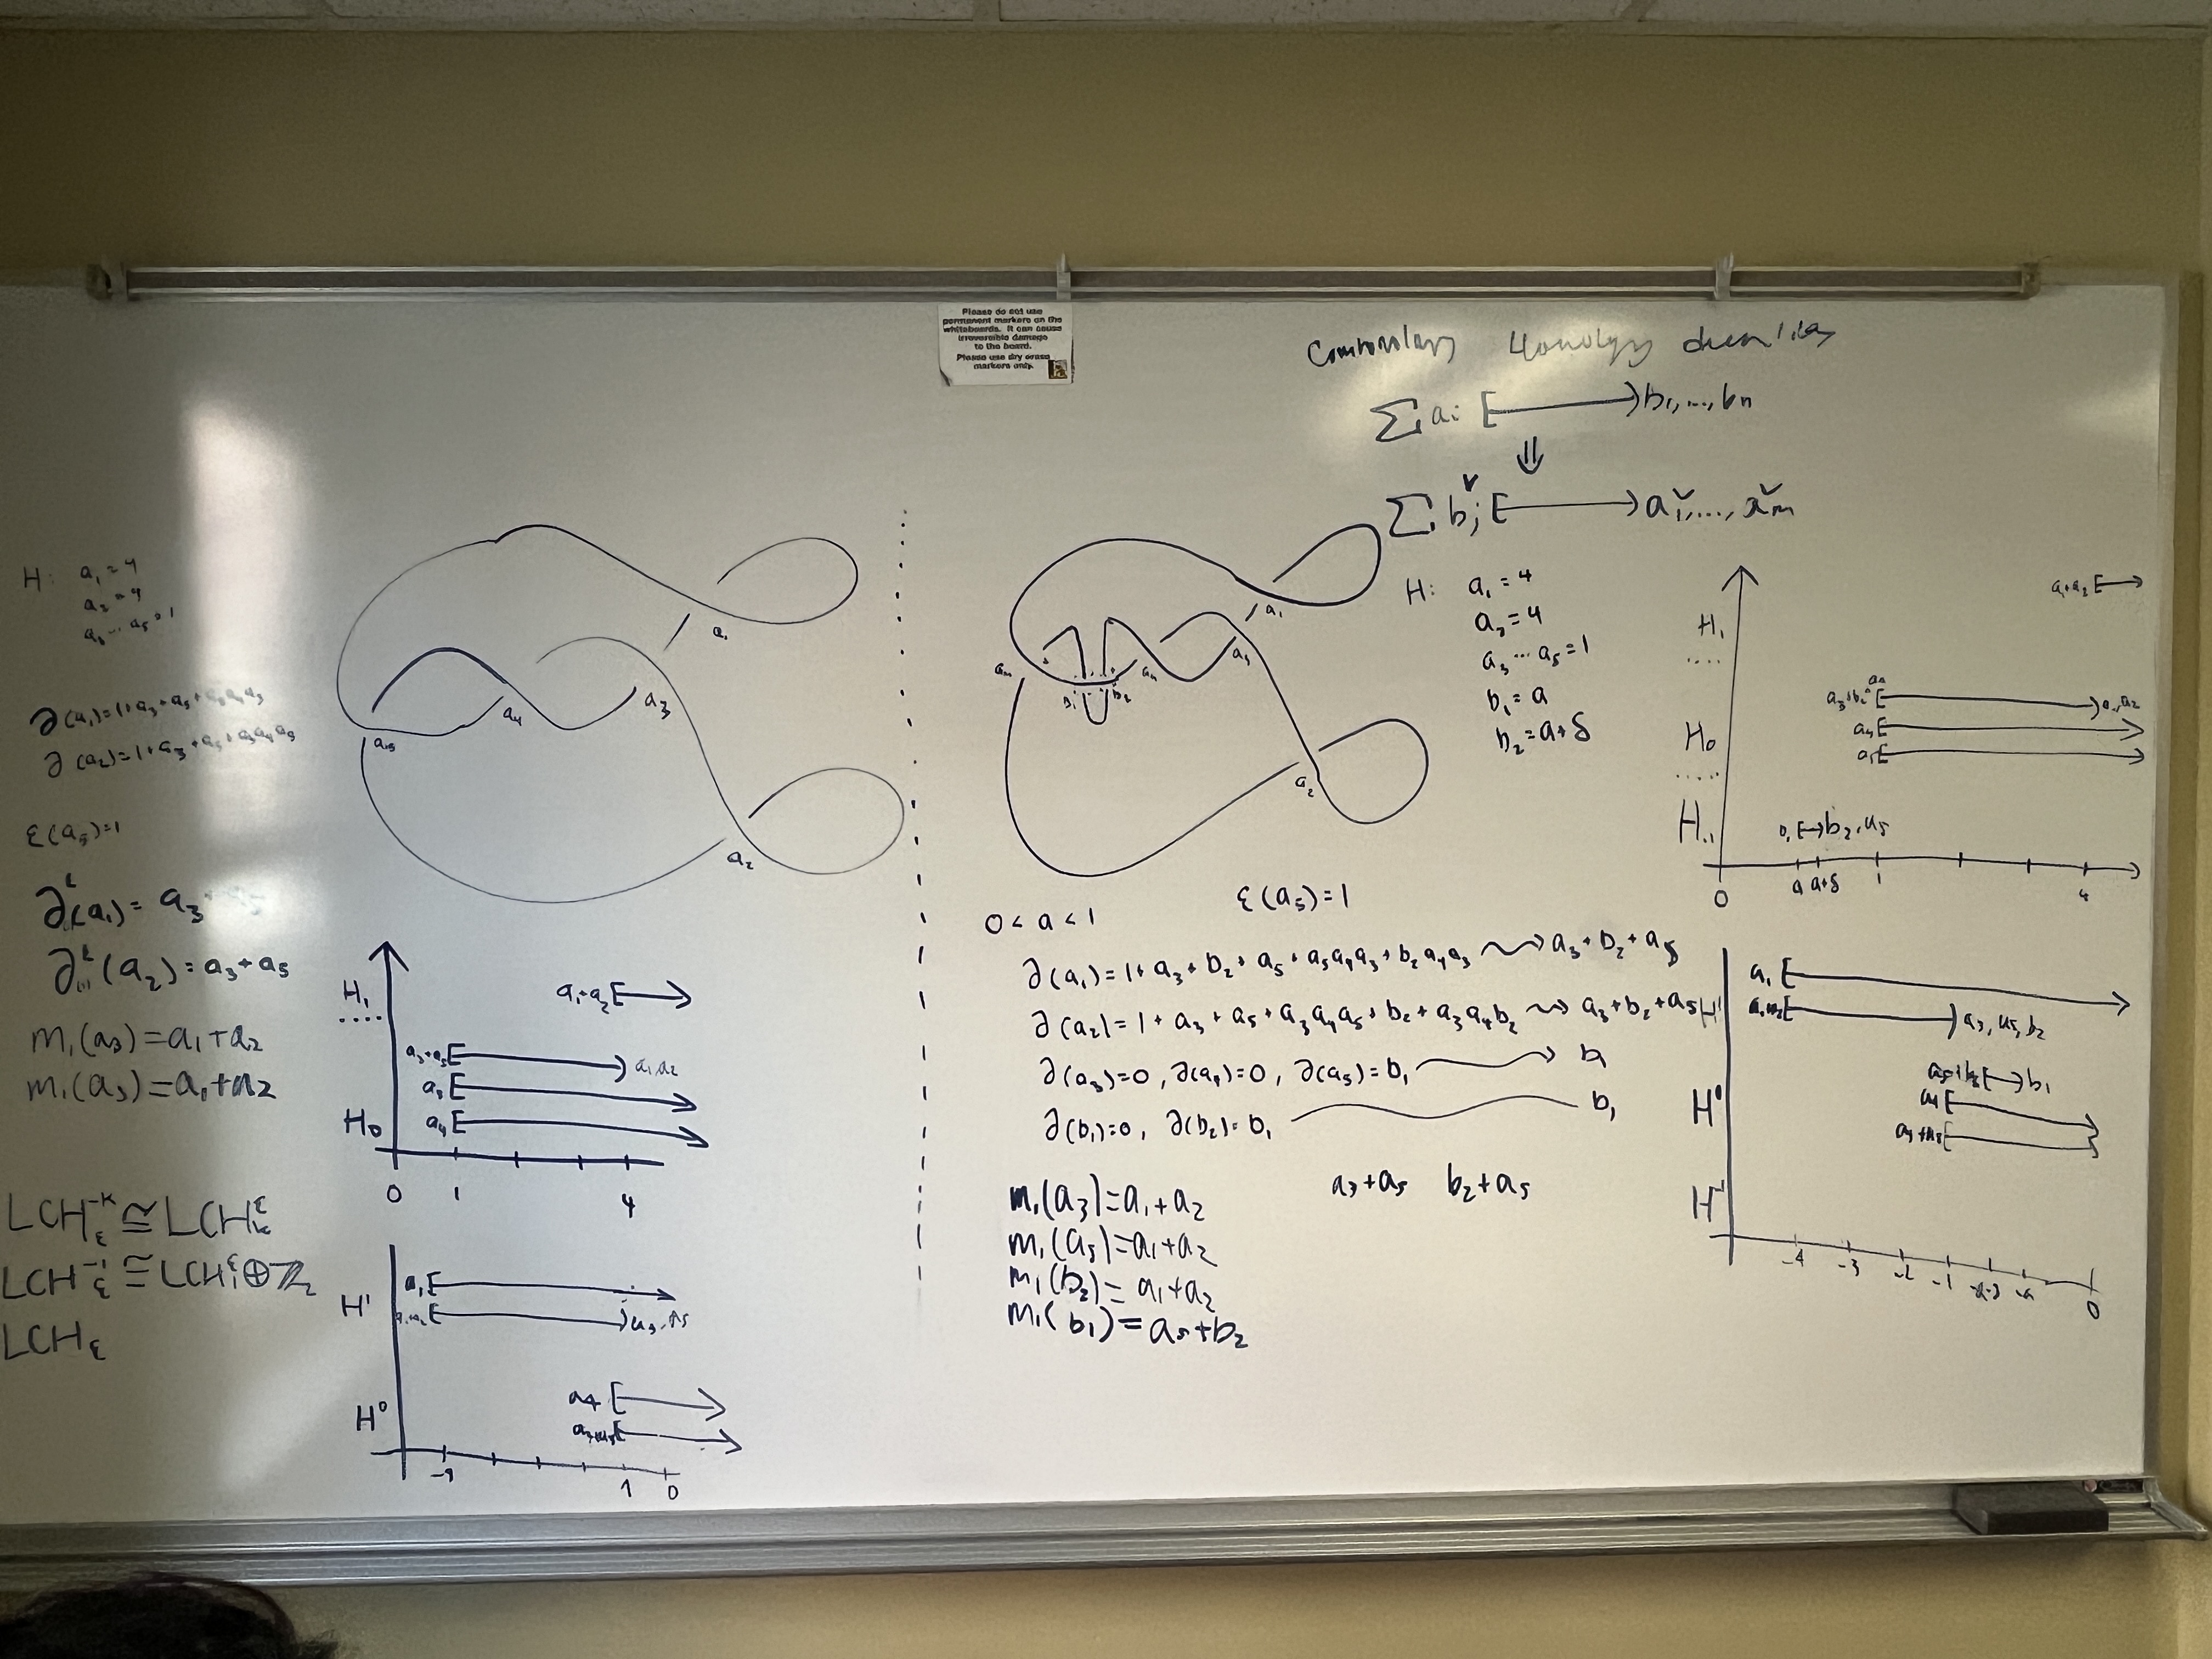 Please do not use
permanent markers on the
whiteboards. It can cause
irreversible damage
to the board.
Please use dry erase
markers only.
Σ aᵢ [⟶) b₁,...,bₙ
⇓
Σ bⱼ^∨ [⟶) a₁^∨,...,aₘ^∨
H: a₁=4
a₂=4
a₃...a₅=1
∂(a₁)=1+a₃+a₅+a₅a₄a₃
∂(a₂)=1+a₃+a₅+a₃a₄a₅
ε(a₅)=1
∂(a₁)=a₃+a₅
∂(a₂)=a₃+a₅
m₁(a₃)=a₁+a₂
m₁(a₅)=a₁+a₂
LCH_ε^-k ≅ LCH_k^ε
LCH_ε^-i ≅ LCH_i^ε ⊕ ℤ₂
LCH_ε
a₁
a₄
a₃
a₅
a₂
H₁
a₁+a₂ [→
a₃+a₅ [⟶) a₁,a₂
a₃ [⟶
H₀ a₄ [⟶
0 1 4
H¹
a₁ [⟶
a₁+a₂ [⟶) a₃,a₅
H⁰
a₄ [⟶
a₃+a₅ [⟶
-4 1 0
a₁
a₄ a₃
b₁ b₂
a₂
H: a₁=4
a₂=4
a₃...a₅=1
b₁=a
b₂=a+δ
0<a<1
ε(a₅)=1
∂(a₁)=1+a₃+b₂+a₅+a₅a₄a₃+b₂a₄a₃ ⇝ a₃+b₂+a₅
∂(a₂)=1+a₃+a₅+a₃a₄a₅+b₂+a₃a₄b₂ ⇝ a₃+b₂+a₅
∂(a₃)=0, ∂(a₄)=0, ∂(a₅)=b₁ ⟶ b₁
∂(b₁)=0, ∂(b₂)=b₁ b₁
m₁(a₃)=a₁+a₂
m₁(a₅)=a₁+a₂
m₁(b₂)=a₁+a₂
m₁(b₁)=a₅+b₂
a₃+a₅ b₂+a₅
a₁+a₂ [→
H₁
a₃+b₂+ [⟶) a₁,a₂
H₀ a₄ [⟶
[⟶
H₋₁
b₁ [→) b₂,a₅
0 a a+δ 1 4
a₁ [⟶
H¹ a₁+a₂ [⟶) a₃,a₅,b₂
[→) b₁
H⁰ a₄ [⟶
a₃+a₅ [⟶
H⁻¹
-4 -3 -2 -1 -a-δ -a 0